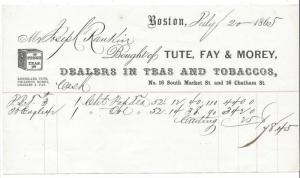 Boston, July 20 1865
Mr Joseph Rankin
Bought of TUTE, FAY & MOREY,
DEALERS IN TEAS AND TOBACCOS,
No. 16 South Market St. and 16 Chatham St.
Cash
1 Chst Jap Tea 52. 12 40 110 44.00
1 " Do 52. 14 38 90 34.20
25
78.45